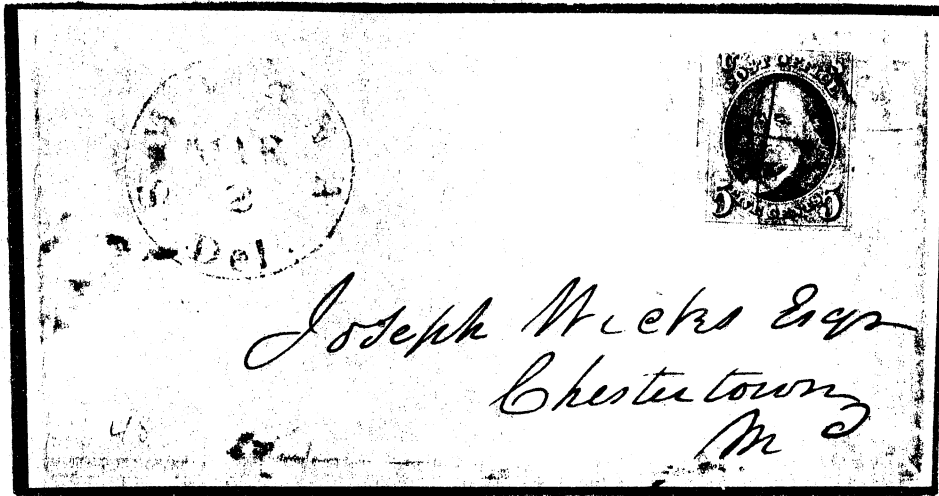 SMYRNA
MAR
Del.
POST OFFICE
5 FIVE CENTS 5
Joseph Wickes Esqr
Chestertown
Md